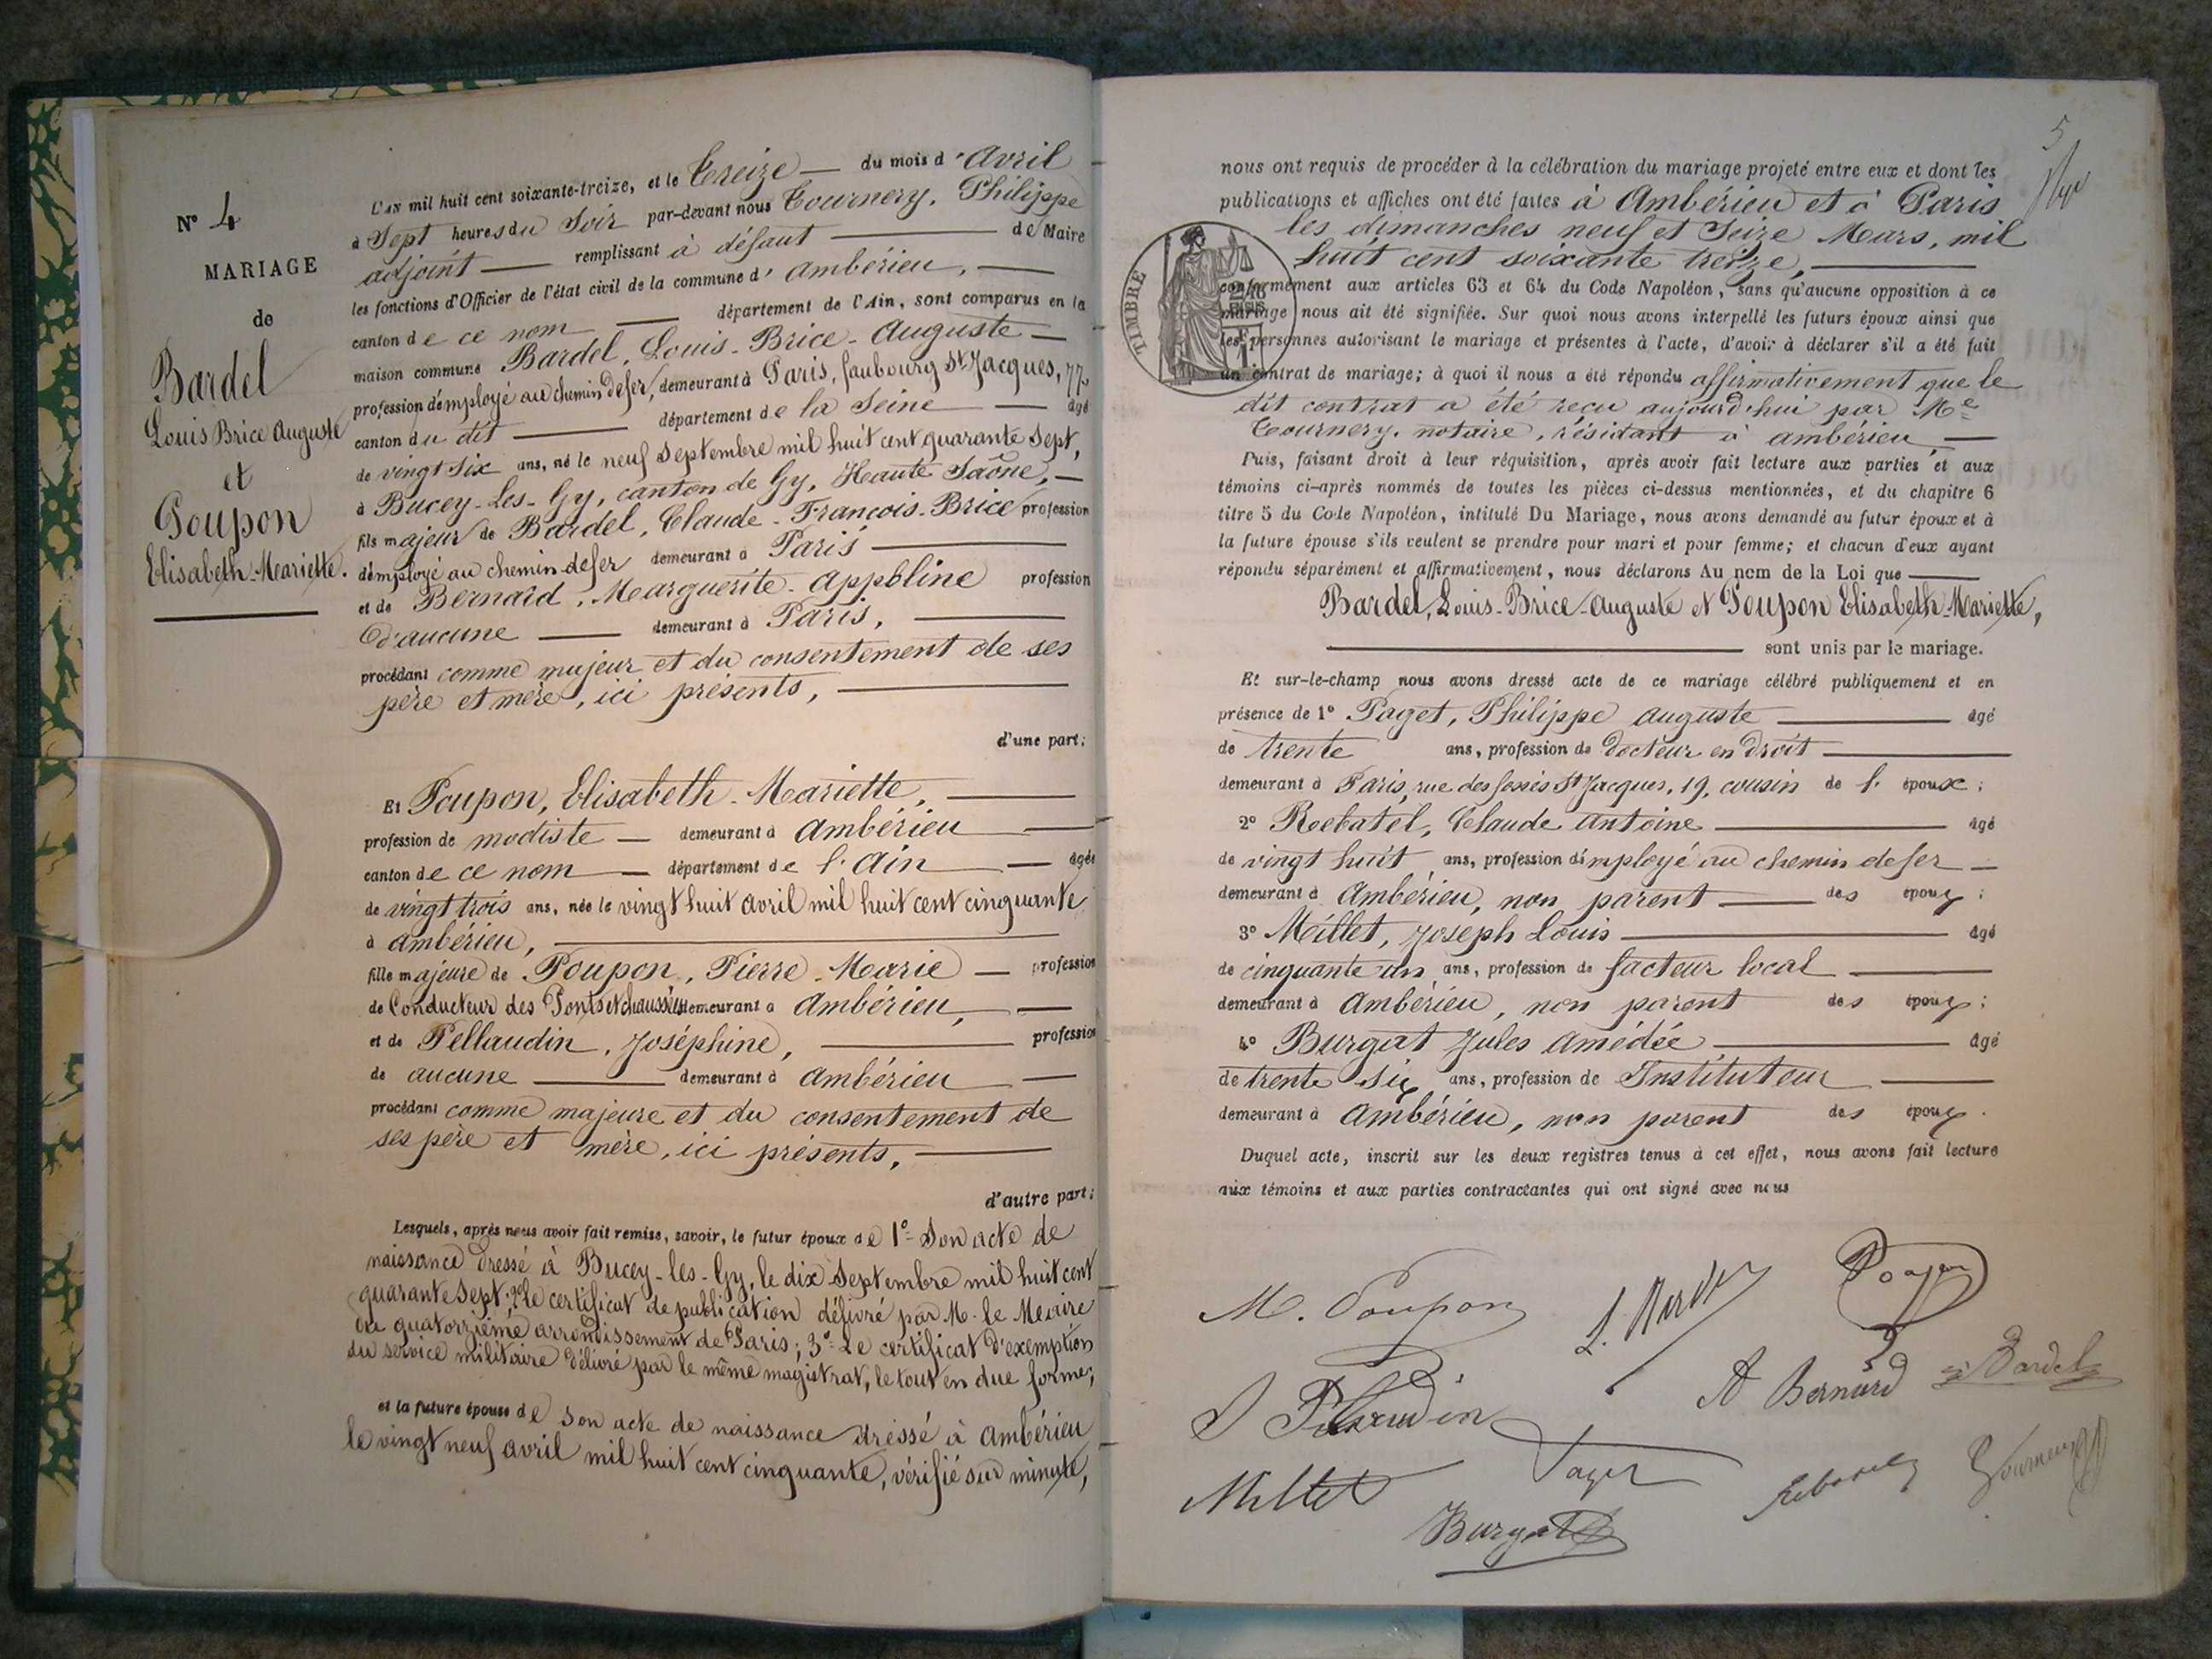 N° 4
MARIAGE
de
Bardel
Louis Brice Auguste
et
Poupon
Elisabeth Mariette.
L'AN mil huit cent soixante-treize, et le Treize du mois d'Avril
à Sept heures du Soir par-devant nous Tournery, Philippe
adjoint remplissant à défaut de Maire
les fonctions d'Officier de l'état civil de la commune d'Ambérieu,
canton de ce nom département de l'Ain, sont comparus en la
maison commune Bardel, Louis-Brice-Auguste
profession d'employé au chemin de fer, demeurant à Paris, faubourg St Jacques, 77,
canton du dit département de la Seine âgé
de vingt six ans, né le neuf Septembre mil huit cent quarante sept,
à Bucey-Les-Gy, canton de Gy, Haute Saône,
fils majeur de Bardel, Claude-François-Brice profession
d'employé au chemin de fer demeurant à Paris
et de Bernard, Marguerite-Appoline profession
d'aucune demeurant à Paris,
procédant comme majeur et du consentement de ses
père et mère, ici présents,
d'une part;
Et Poupon, Elisabeth-Mariette,
profession de modiste demeurant à Ambérieu
canton de ce nom département de l'Ain âgée
de vingt trois ans, née le vingt huit avril mil huit cent cinquante
à Ambérieu,
fille majeure de Poupon, Pierre-Marie profession
de Conducteur des Ponts et chaussées demeurant à Ambérieu,
et de Pellaudin, Joséphine, profession
de aucune demeurant à Ambérieu
procédant comme majeure et du consentement de
ses père et mère, ici présents,
d'autre part;
Lesquels, après nous avoir fait remise, savoir, le futur époux de 1° Son acte de
naissance dressé à Bucey-les-Gy, le dix Septembre mil huit cent
quarante Sept; 2° le certificat de publication délivré par M. le Maire
du quatorzième arrondissement de Paris; 3° Le certificat d'exemption
du service militaire délivré par le même magistrat, le tout en due forme;
et la future épouse de Son acte de naissance dressé à Ambérieu
le vingt neuf avril mil huit cent cinquante, vérifié sur minute,
5
nous ont requis de procéder à la célébration du mariage projeté entre eux et dont les
publications et affiches ont été faites à Ambérieu et à Paris
les dimanches neuf et Seize Mars, mil
huit cent soixante treize,
TIMBRE
conformément aux articles 63 et 64 du Code Napoléon, sans qu'aucune opposition à ce
mariage nous ait été signifiée. Sur quoi nous avons interpellé les futurs époux ainsi que
les personnes autorisant le mariage et présentes à l'acte, d'avoir à déclarer s'il a été fait
un contrat de mariage; à quoi il nous a été répondu affirmativement que le
dit contrat a été reçu aujourd'hui par Me
Tournery, notaire, résidant à Ambérieu
Puis, faisant droit à leur réquisition, après avoir fait lecture aux parties et aux
témoins ci-après nommés de toutes les pièces ci-dessus mentionnées, et du chapitre 6
titre 5 du Code Napoléon, intitulé Du Mariage, nous avons demandé au futur époux et à
la future épouse s'ils veulent se prendre pour mari et pour femme; et chacun d'eux ayant
répondu séparément et affirmativement, nous déclarons Au nom de la Loi que
Bardel, Louis-Brice-Auguste et Poupon Elisabeth-Mariette,
sont unis par le mariage.
Et sur-le-champ nous avons dressé acte de ce mariage célébré publiquement et en
présence de 1° Paget, Philippe Auguste âgé
de trente ans, profession de Docteur en Droit
demeurant à Paris, rue des fossés St Jacques, 19, cousin de l'époux;
2° Rebatel, Claude Antoine âgé
de vingt huit ans, profession d'employé au chemin de fer
demeurant à Ambérieu, non parent des époux;
3° Millet, Joseph Louis âgé
de cinquante un ans, profession de facteur local
demeurant à Ambérieu, non parent des époux;
4° Burgat Jules Amédée âgé
de trente six ans, profession de Instituteur
demeurant à Ambérieu, non parent des époux.
Duquel acte, inscrit sur les deux registres tenus à cet effet, nous avons fait lecture
aux témoins et aux parties contractantes qui ont signé avec nous
M. Poupon L. Bardel Poupon
J Pellaudin A Bernard Bardel
Millet Paget Rebatel Tournery
Burgat